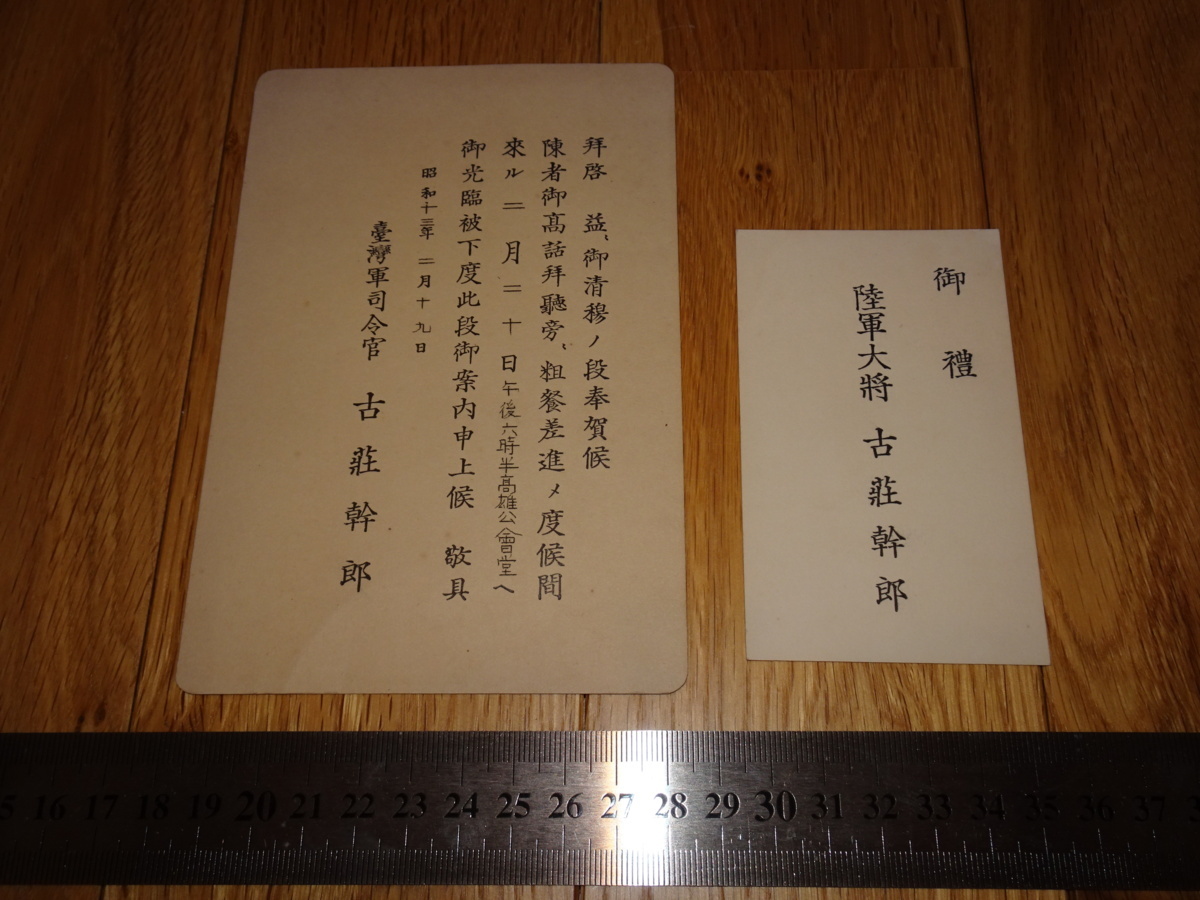 拜啓　益〻御清穆ノ段奉賀候
陳者御高話拜聽旁〻粗餐差進メ度候間
來ル二月二十日午後六時半高雄公會堂へ
御光臨被下度此段御案内申上候　敬具
昭和十三年二月十九日
臺灣軍司令官　古莊幹郎
御禮
陸軍大將　古莊幹郎
15 16 17 18 19 20 21 22 23 24 25 26 27 28 29 30 31 32 33 34 35 36 37